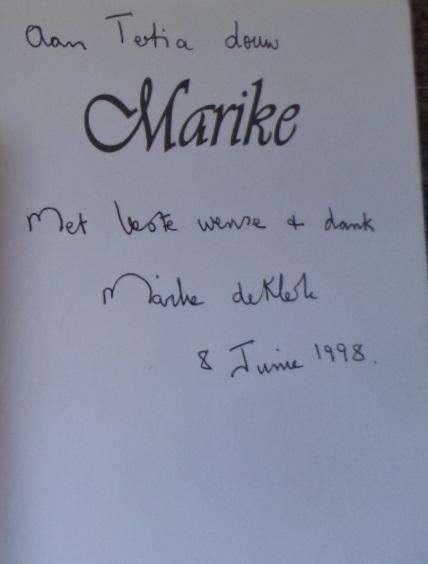 Aan Tertia douw
Marike
Met beste wense + dank
Marike de Klerk
8 Junie 1998.